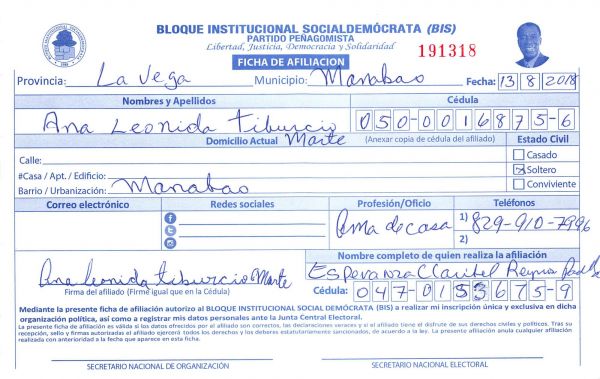 BLOQUE INSTITUCIONAL SOCIALDEMÓCRATA (BIS)
PARTIDO PEÑAGOMISTA
Libertad, Justicia, Democracia y Solidaridad
191318
FICHA DE AFILIACION
Provincia: La Vega Municipio: Manabao Fecha: 13 8 2018
Nombres y Apellidos Cédula
Ana Leonida tiburcio Marte 050-0016875-6
Domicilio Actual (Anexar copia de cédula del afiliado) Estado Civil
Calle: Casado
#Casa / Apt. / Edificio: Soltero
Barrio / Urbanización: Manabao Conviviente
Correo electrónico Redes sociales Profesión/Oficio Teléfonos
Ama de casa 1) 829-910-7996
2)
Nombre completo de quien realiza la afiliación
Ana leonida tiburcio Marte Esperanza Claribel Reynoso
Firma del afiliado (Firme igual que en la Cédula) Cédula: 047-0153675-9
Mediante la presente ficha de afiliación autorizo al BLOQUE INSTITUCIONAL SOCIAL DEMÓCRATA (BIS) a realizar mi inscripción única y exclusiva en dicha
organización política, así como a registrar mis datos personales ante la Junta Central Electoral.
La presente ficha de afiliación es válida si los datos ofrecidos por el afiliado son correctos, las declaraciones veraces y si el afiliado tiene el disfrute de sus derechos civiles y políticos. Tras su
recepción, sello y firmas autorizadas el afiliado ejercerá todos los derechos y los deberes estatutariamente sancionados, de acuerdo a la ley. La presente afiliación anula cualquier afiliación
realizada con anterioridad a la fecha que aparece en esta ficha.
SECRETARIO NACIONAL DE ORGANIZACIÓN SECRETARIO NACIONAL ELECTORAL